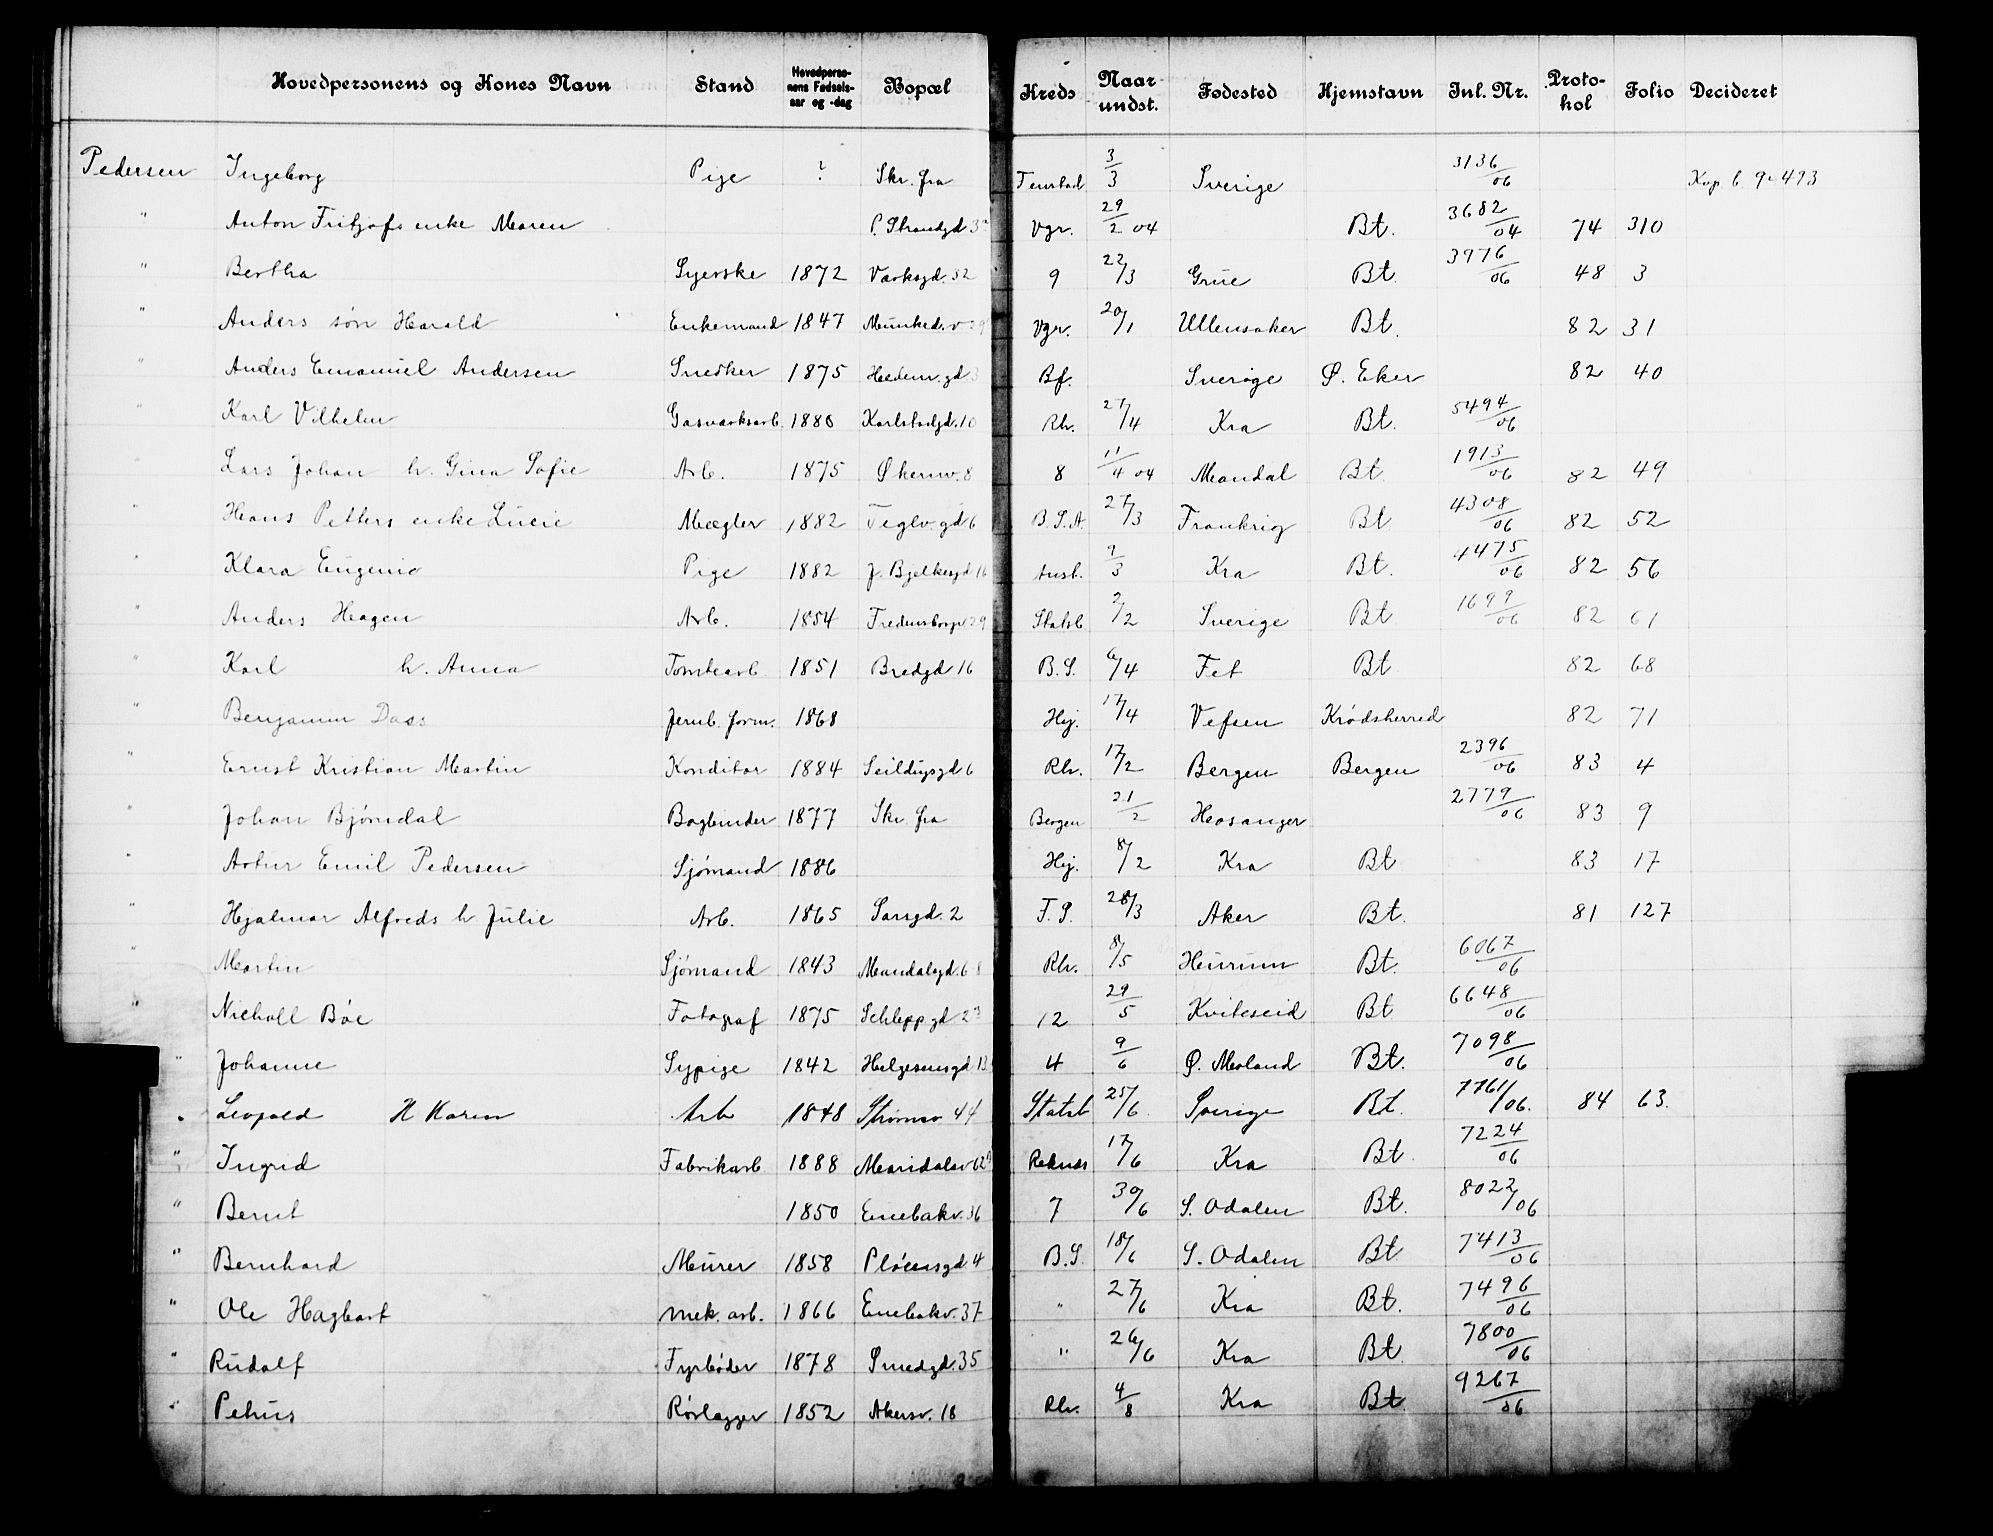 Hovedpersonens og Kones Navn Stand Hovedperso-nens Fødsels-aar og -dag Bopæl Kreds Naar undst. Fødested Hjemstavn Inl. Nr. Proto-kol Folio Decideret
Pedersen Ingeborg Pige ? Skr. fra Fenstad 3/3 Sverige 3136/06 Kop b 9-493
" Anton Fritjofs enke Maren P. Strandgd Vgr. 29/2 04 Bt. 3682/04 74 310
" Bertha Syerske 1872 Værksgd. 32 9 22/3 Grue Bt. 3976/06 48 3
" Anders søn Harald Enkemand 1847 Munked. v 29 Vgr. 20/1 Ullensaker Bt. 82 31
" Anders Emanuel Andersen Snedker 1875 Hedem. gd 3 Bf. Sverige Ø. Eker 82 40
" Karl Vilhelm Gasværksarb. 1880 Karlstadgd. 10 Rh. 27/4 Kra Bt. 5494/06
" Lars Johan h. Gina Sofie Arb. 1875 Økernv. 8 8 11/4 04 Mandal Bt. 1913/06 82 49
" Hans Petters enke Lucie Mægler 1882 Teglv. gd 6 B.S.A. 27/3 Frankrig Bt 4308/06 82 52
" Klara Eugenie Pige 1882 J. Bjelkesgd 16 Aust. 9/3 Kra Bt. 4475/06 82 56
" Anders Hagen Arb. 1854 Fredensborgv 29 Statsb 2/2 Sverige Bt 1699/06 82 61
" Karl h. Anna Tomtearb. 1851 Bredgd 16 B.S. 6/4 Fet Bt 82 68
" Benjamin Dass Jernb. form. 1868 Hij. 17/4 Vefsen Krødsherred 82 71
" Ernst Kristian Martin Konditor 1884 Seildugsgd 6 Rh. 17/2 Bergen Bergen 2396/06 83 4
" Johan Bjørndal Bogbinder 1877 Skr. fra Bergen 21/2 Hosanger 2779/06 83 9
" Artur Emil Pedersen Sjømand 1886 Hij. 8/2 Kra Bt 83 17
" Hjalmar Alfreds h. Julie Arb. 1865 Sarsgd. 2 F.S. 28/3 Aker Bt. 81 127
" Martin Sjømand 1843 Mandalsgd. 6 Rh. 8/5 Hurum Bt. 6067/06
" Nicholl Bøe Fotograf 1875 Schleppgd 23 12 29/5 Kviteseid Bt 6648/06
" Johanne Sypige 1842 Helgesensgd 13 4 9/6 Ø. Moland Bt. 7098/06
" Leopold H Karen Arb 1848 Strømsv 44 Statsb 25/6. Sverige Bt. 7761/06. 84 63.
" Ingrid Fabrikarb 1888 Maridalsv 62 Reknes 17/6 Kra Bt. 7224/06
" Bernt 1850 Enebakv. 36 7 30/6 S. Odalen Bt. 8022/06
" Bernhard Murer 1858 Pløensgd 4 B.S. 18/6 S. Odalen Bt 7413/06
" Ole Hagbart mek. arb. 1866 Enebakv. 37 " 27/6 Kra Bt. 7496/06
" Rudolf Fyrbøder 1878 Smedgd. 35 " 26/6 Kra Bt. 7800/06
" Petrus Rørlægger 1852 Akersv. 18 Rh. 4/8 Kra Bt. 9267/06